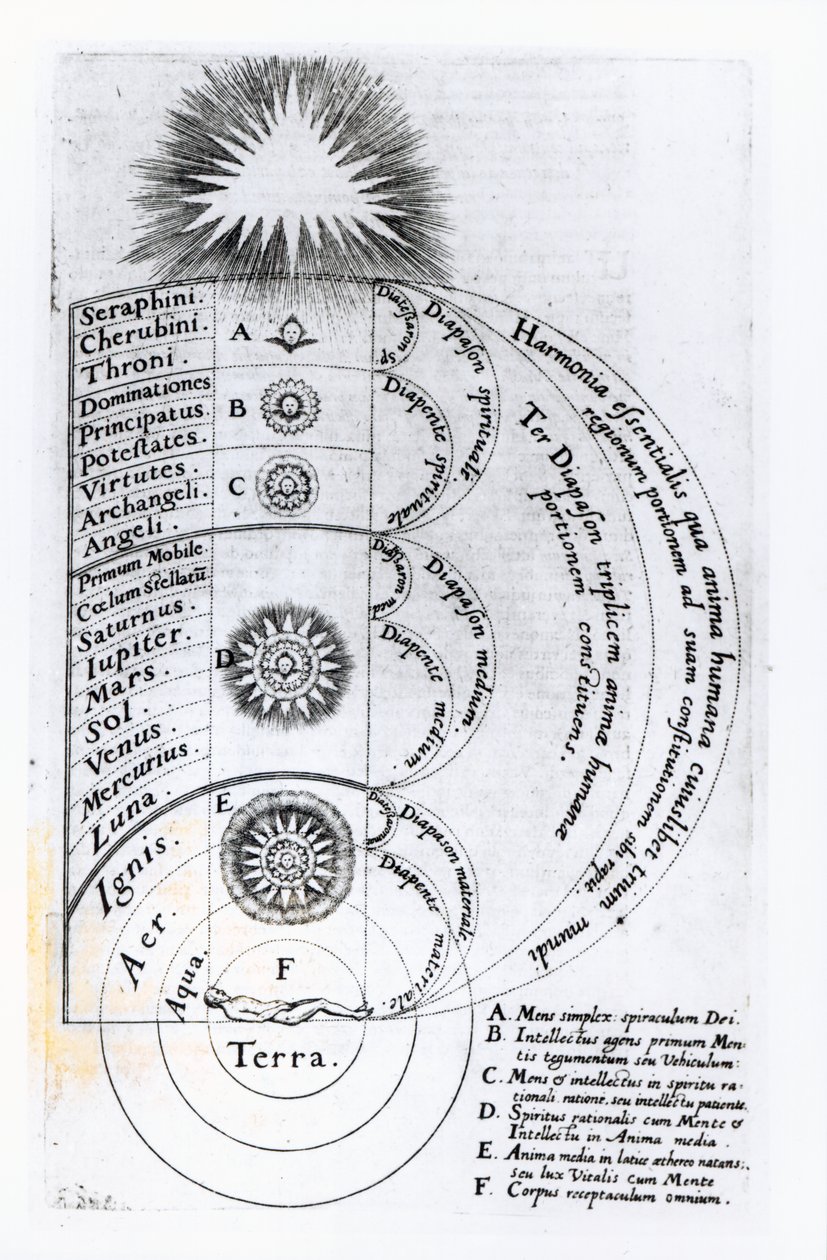 Seraphini.
Cherubini.
Throni.
Dominationes
Principatus.
Poteſtates.
Virtutes.
Archangeli.
Angeli.
Primum Mobile.
Cœlum Stellatū
Saturnus.
Iupiter.
Mars.
Sol.
Venus.
Mercurius.
Luna.
Ignis.
Aer.
Aqua.
Terra.
A
B
C
D
E
F
Diateſsaron sp:
Diapaſon spirituale.
Diapente spirituale
Diapaſon medium.
Diapente medium
Diapason materiale.
Diapente materiale.
Harmonia eſsentialis qua anima humana cuiuslibet trium mundi
regionum portionem ad suam conſtitutionem sibi rapit
Ter Diapaſon triplicem animæ humanæ
portionem constituens.
A. Mens simplex: spiraculum Dei.
B. Intellectus agens primum Men:
tis tegumentum seu Vehiculum:
C. Mens & intellectus in spiritu ra:
tionali ratione, seu intellectu patiente.
D. Spiritus rationalis cum Mente &
Intellectu in Anima media.
E. Anima media in latice æthereo natans;
seu lux Vitalis cum Mente
F. Corpus receptaculum omnium.